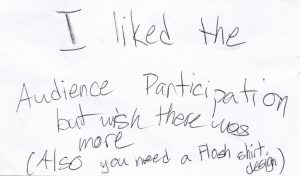 I liked the
Audience Participation
but wish there was
more
(Also you need a Flash shirt
design)